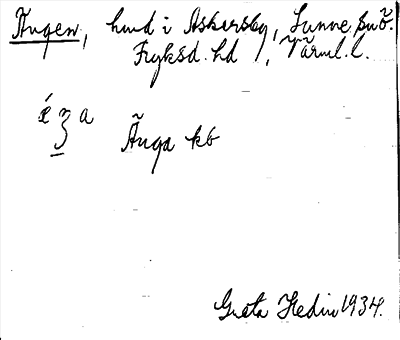 Ängen, hmd i Askersby, Sunne sn ö.
Fryksd. hd, Värml. l.
Änga kb
Greta Hedin 1934.